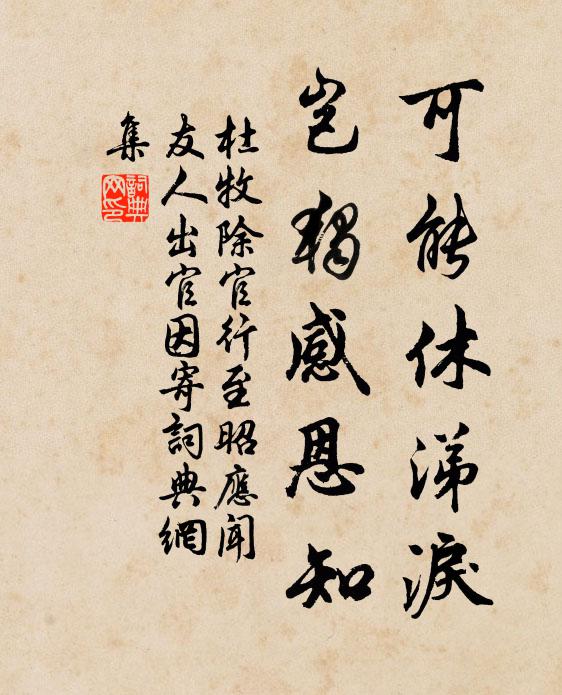 可能休涕淚
豈獨感恩知
杜牧除官行至昭應聞
友人出官因寄詞典網
集
詞典網印